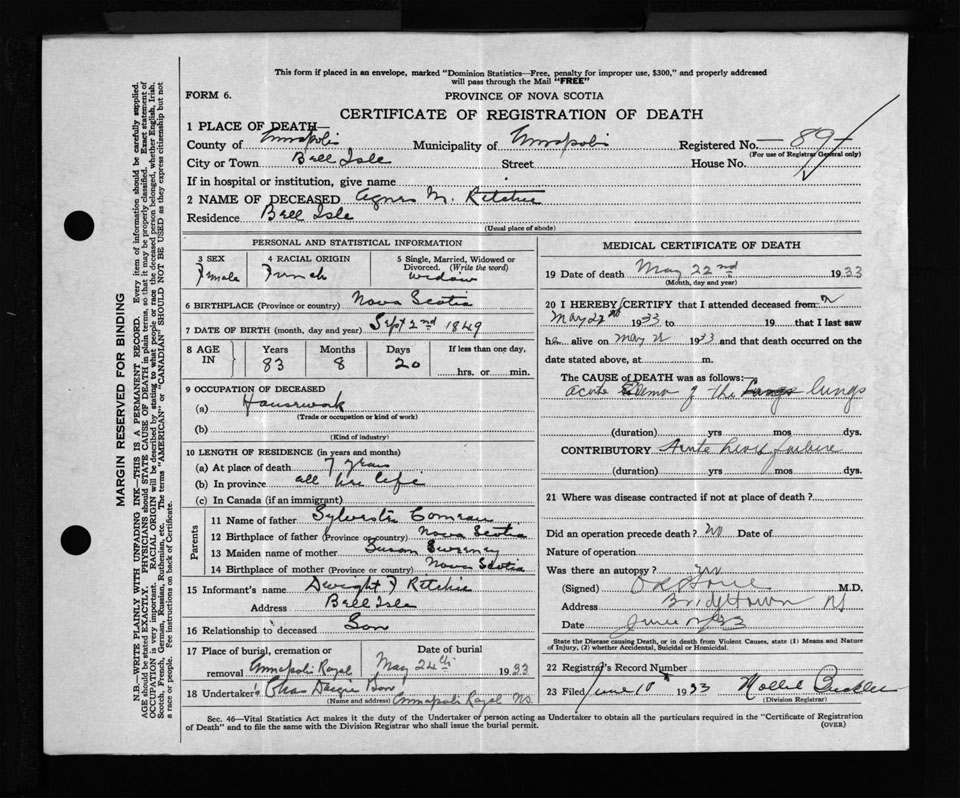 This form if placed in an envelope, marked "Dominion Statistics—Free, penalty for improper use, $300," and properly addressed
will pass through the Mail "FREE"
FORM 6. PROVINCE OF NOVA SCOTIA
CERTIFICATE OF REGISTRATION OF DEATH
1 PLACE OF DEATH—
County of Annapolis Municipality of Annapolis Registered No. 89
(For use of Registrar General only)
City or Town Bell Isle Street House No.
If in hospital or institution, give name
2 NAME OF DECEASED Agnes M. Ritchie
Residence Bell Isle
(Usual place of abode)
PERSONAL AND STATISTICAL INFORMATION
3 SEX 4 RACIAL ORIGIN 5 Single, Married, Widowed or
Divorced. (Write the word)
Female French widow
6 BIRTHPLACE (Province or country) Nova Scotia
7 DATE OF BIRTH (month, day and year) Sept 2nd 1849
8 AGE IN Years Months Days If less than one day,
83 8 20 hrs. or min.
9 OCCUPATION OF DECEASED
(a) Housework
(Trade or occupation or kind of work)
(b)
(Kind of industry)
10 LENGTH OF RESIDENCE (in years and months)
(a) At place of death 7 years
(b) In province all her life
(c) In Canada (if an immigrant)
Parents
11 Name of father Sylvester Comeau
12 Birthplace of father (Province or country) Nova Scotia
13 Maiden name of mother Susan Sweeney
14 Birthplace of mother (Province or country) Nova Scotia
15 Informant's name Dwight F Ritchie
Address Bell Isle
16 Relationship to deceased Son
17 Place of burial, cremation or Date of burial
removal Annapolis Royal May 24th 1933
18 Undertaker's
(Name and address) Annapolis Royal NS.
MEDICAL CERTIFICATE OF DEATH
19 Date of death May 22nd 1933
(Month, day and year)
20 I HEREBY CERTIFY that I attended deceased from
May 22nd 1933 to 19 that I last saw
her alive on May 22 1933 and that death occurred on the
date stated above, at m.
The CAUSE of DEATH was as follows:
Acute Edema of the lungs lungs
(duration) yrs mos dys.
CONTRIBUTORY Acute heart failure
(duration) yrs. mos. dys.
21 Where was disease contracted if not at place of death?
Did an operation precede death? no Date of
Nature of operation
Was there an autopsy? no
(Signed) M.D.
Address Bridgetown NS
Date June 33
State the Disease causing Death, or in death from Violent Causes, state (1) Means and Nature
of Injury, (2) whether Accidental, Suicidal or Homicidal.
22 Registrar's Record Number
23 Filed June 10 1933 Mollie
(Division Registrar)
Sec. 46—Vital Statistics Act makes it the duty of the Undertaker or person acting as Undertaker to obtain all the particulars required in the "Certificate of Registration
of Death" and to file the same with the Division Registrar who shall issue the burial permit. (OVER)
MARGIN RESERVED FOR BINDING
N.B.—WRITE PLAINLY WITH UNFADING INK—THIS IS A PERMANENT RECORD. Every item of information should be carefully supplied.
AGE should be stated EXACTLY. PHYSICIANS should STATE CAUSE OF DEATH in plain terms, so that it may be properly classified. Exact statement of
OCCUPATION is very important. RACIAL ORIGIN will be described by stating to what people or race the deceased person belonged, whether English, Irish,
Scotch, French, German, Russian, Ruthenian, etc. The terms "AMERICAN" or "CANADIAN" SHOULD NOT BE USED as they express citizenship but not
a race or people. See instructions on back of Certificate.